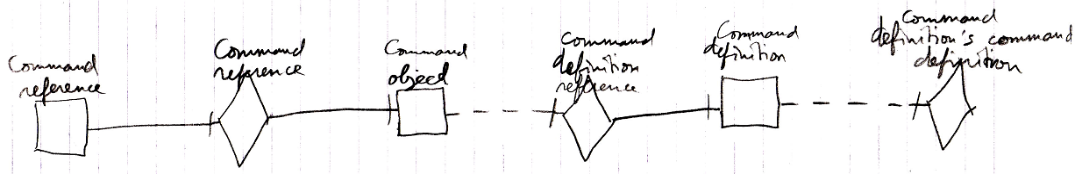 Command
reference
Command
reference
Command
object
Command
definition
reference
Command
definition
Command
definition's command
definition